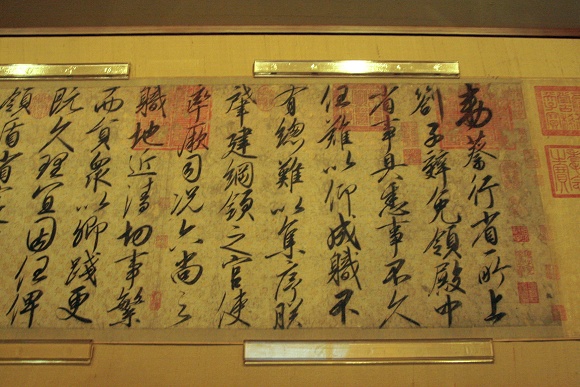 敕蔡行省所上
劄子辭免領殿中
省事具悉事不久
任難以仰成職不
有總難以集序朕
肇建綱領之官使
率厥司況六尚之
職地近清切事繁
而員衆以卿踐更
既久理宜因任俾
領盾省